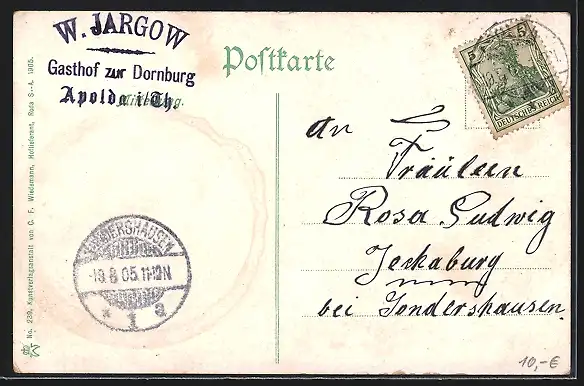 W. JARGOW
Gasthof zur Dornburg
Apolda i. Th.
Postkarte
5 5
DEUTSCHES REICH
An
Fräulein
Rosa Ludwig
Jechaburg
bei Sondershausen.
SONDERSHAUSEN
-19.8.05.11-12N
* 1 a
No. 239, Kunstverlagsanstalt von C. F. Wiedemann, Hoflieferant, Roda S.-A. 1905.
10,-€